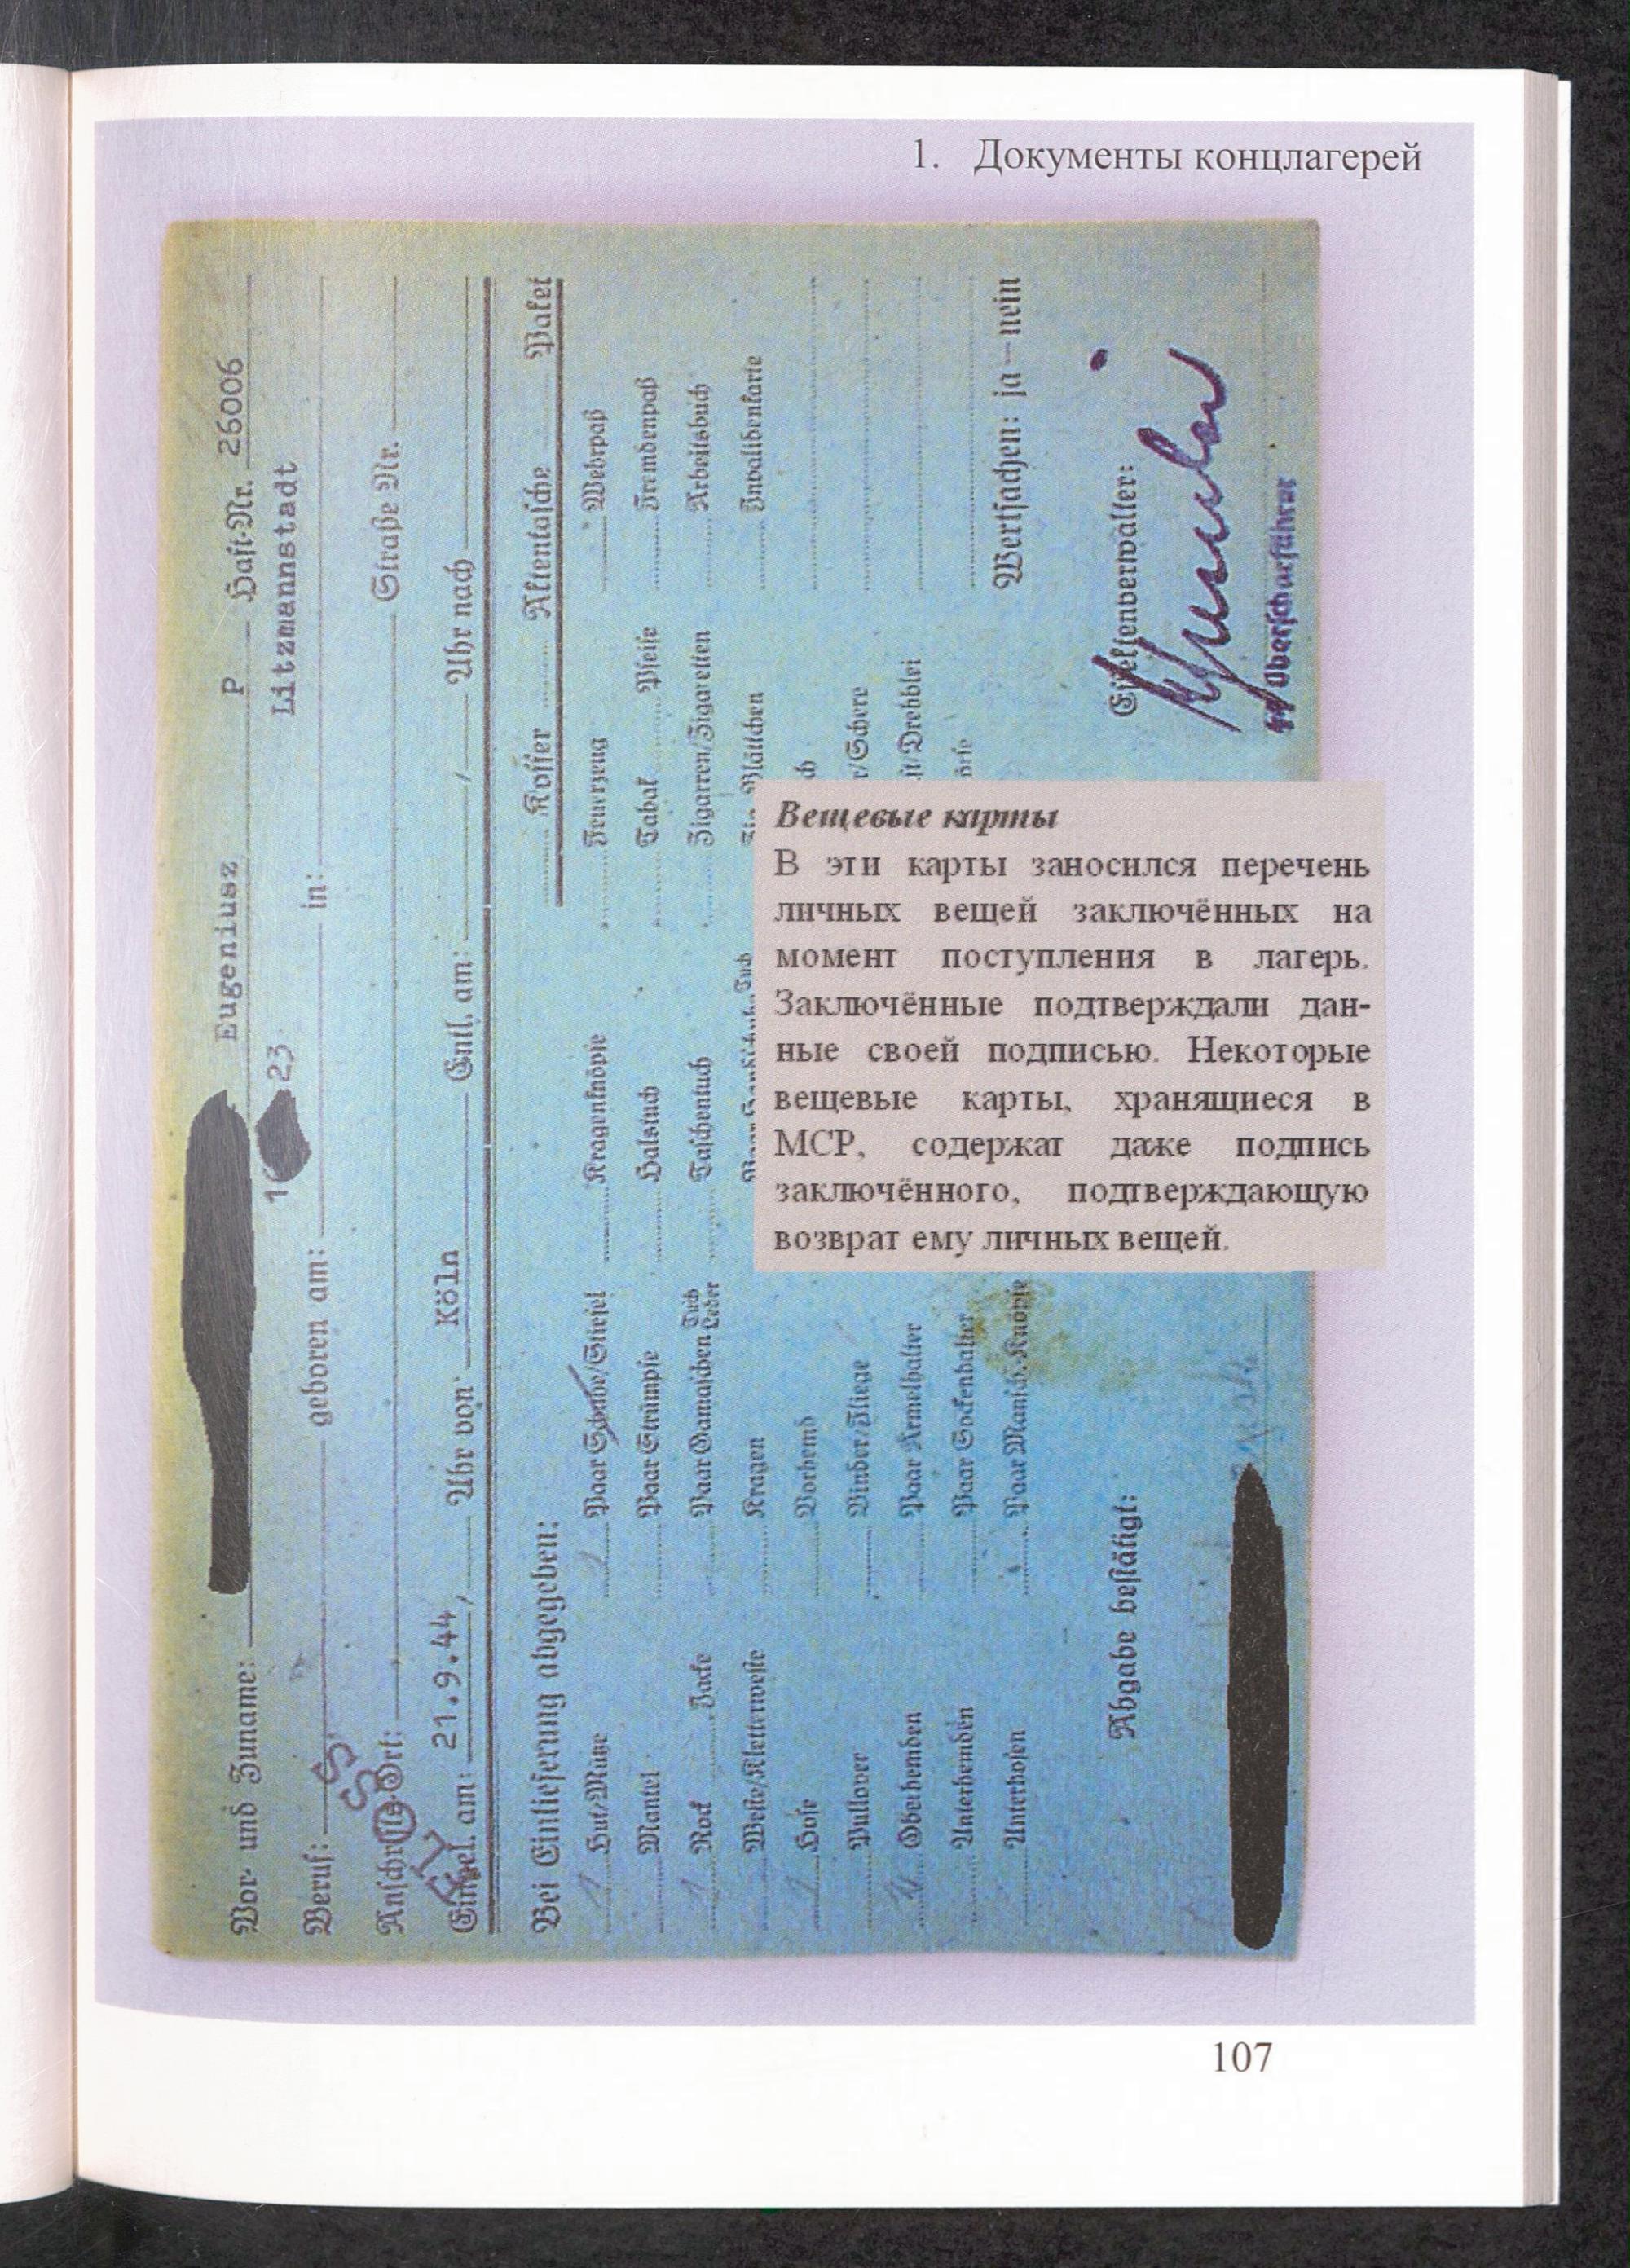 1. Документы концлагерей
Vor- und Zuname: Eugeniusz P Haft-Nr. 26006
Beruf: geboren am: 1 23 in: Litzmannstadt
Anschr Ort: Straße Nr.
Eingel. am: 21.9.44, Uhr von Köln Entl. am: / Uhr nach
Bei Einlieferung abgegeben: Koffer Aktentasche Paket
Hut/Mütze Paar Schuhe/Stiefel Kragenknöpfe Feuerzeug Wehrpaß
Mantel Paar Strümpfe Halstuch Tabak Pfeife Fremdenpaß
Rock Jacke Paar Gamaschen Tuch Leder Taschentuch Zigarren/Zigaretten Arbeitsbuch
Weste/Kletterweste Kragen Paar Tuch Blättchen Invalidenkarte
Hose Vorhemd
Pullover Binder/Fliege r/Schere
Oberhemden Paar Ärmelhalter ft/Drehblei
Unterhemden Paar Sockenhalter örse
Unterhosen Paar Mansch.-Knöpfe Wertsachen: ja – nein
Abgabe bestätigt: Effektenverwalter:
SS Oberscharführer
Вещевые карты
В эти карты заносился перечень
личных вещей заключённых на
момент поступления в лагерь.
Заключённые подтверждали дан-
ные своей подписью. Некоторые
вещевые карты, хранящиеся в
МСР, содержат даже подпись
заключённого, подтверждающую
возврат ему личных вещей.
107